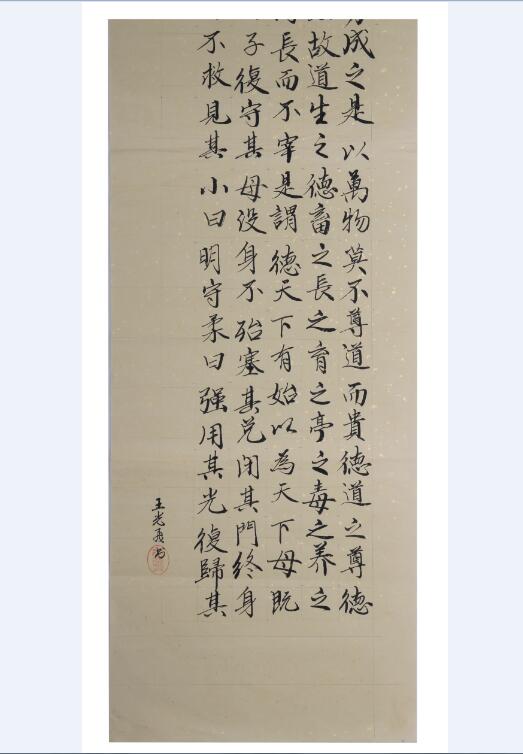 成之是以萬物莫不尊道而貴德道之尊德
故道生之德畜之長之育之亭之毒之養之
長而不宰是謂德天下有始以為天下母既
子復守其母没身不殆塞其兌閉其門終身
不救見其小曰明守柔曰强用其光復歸其
王光